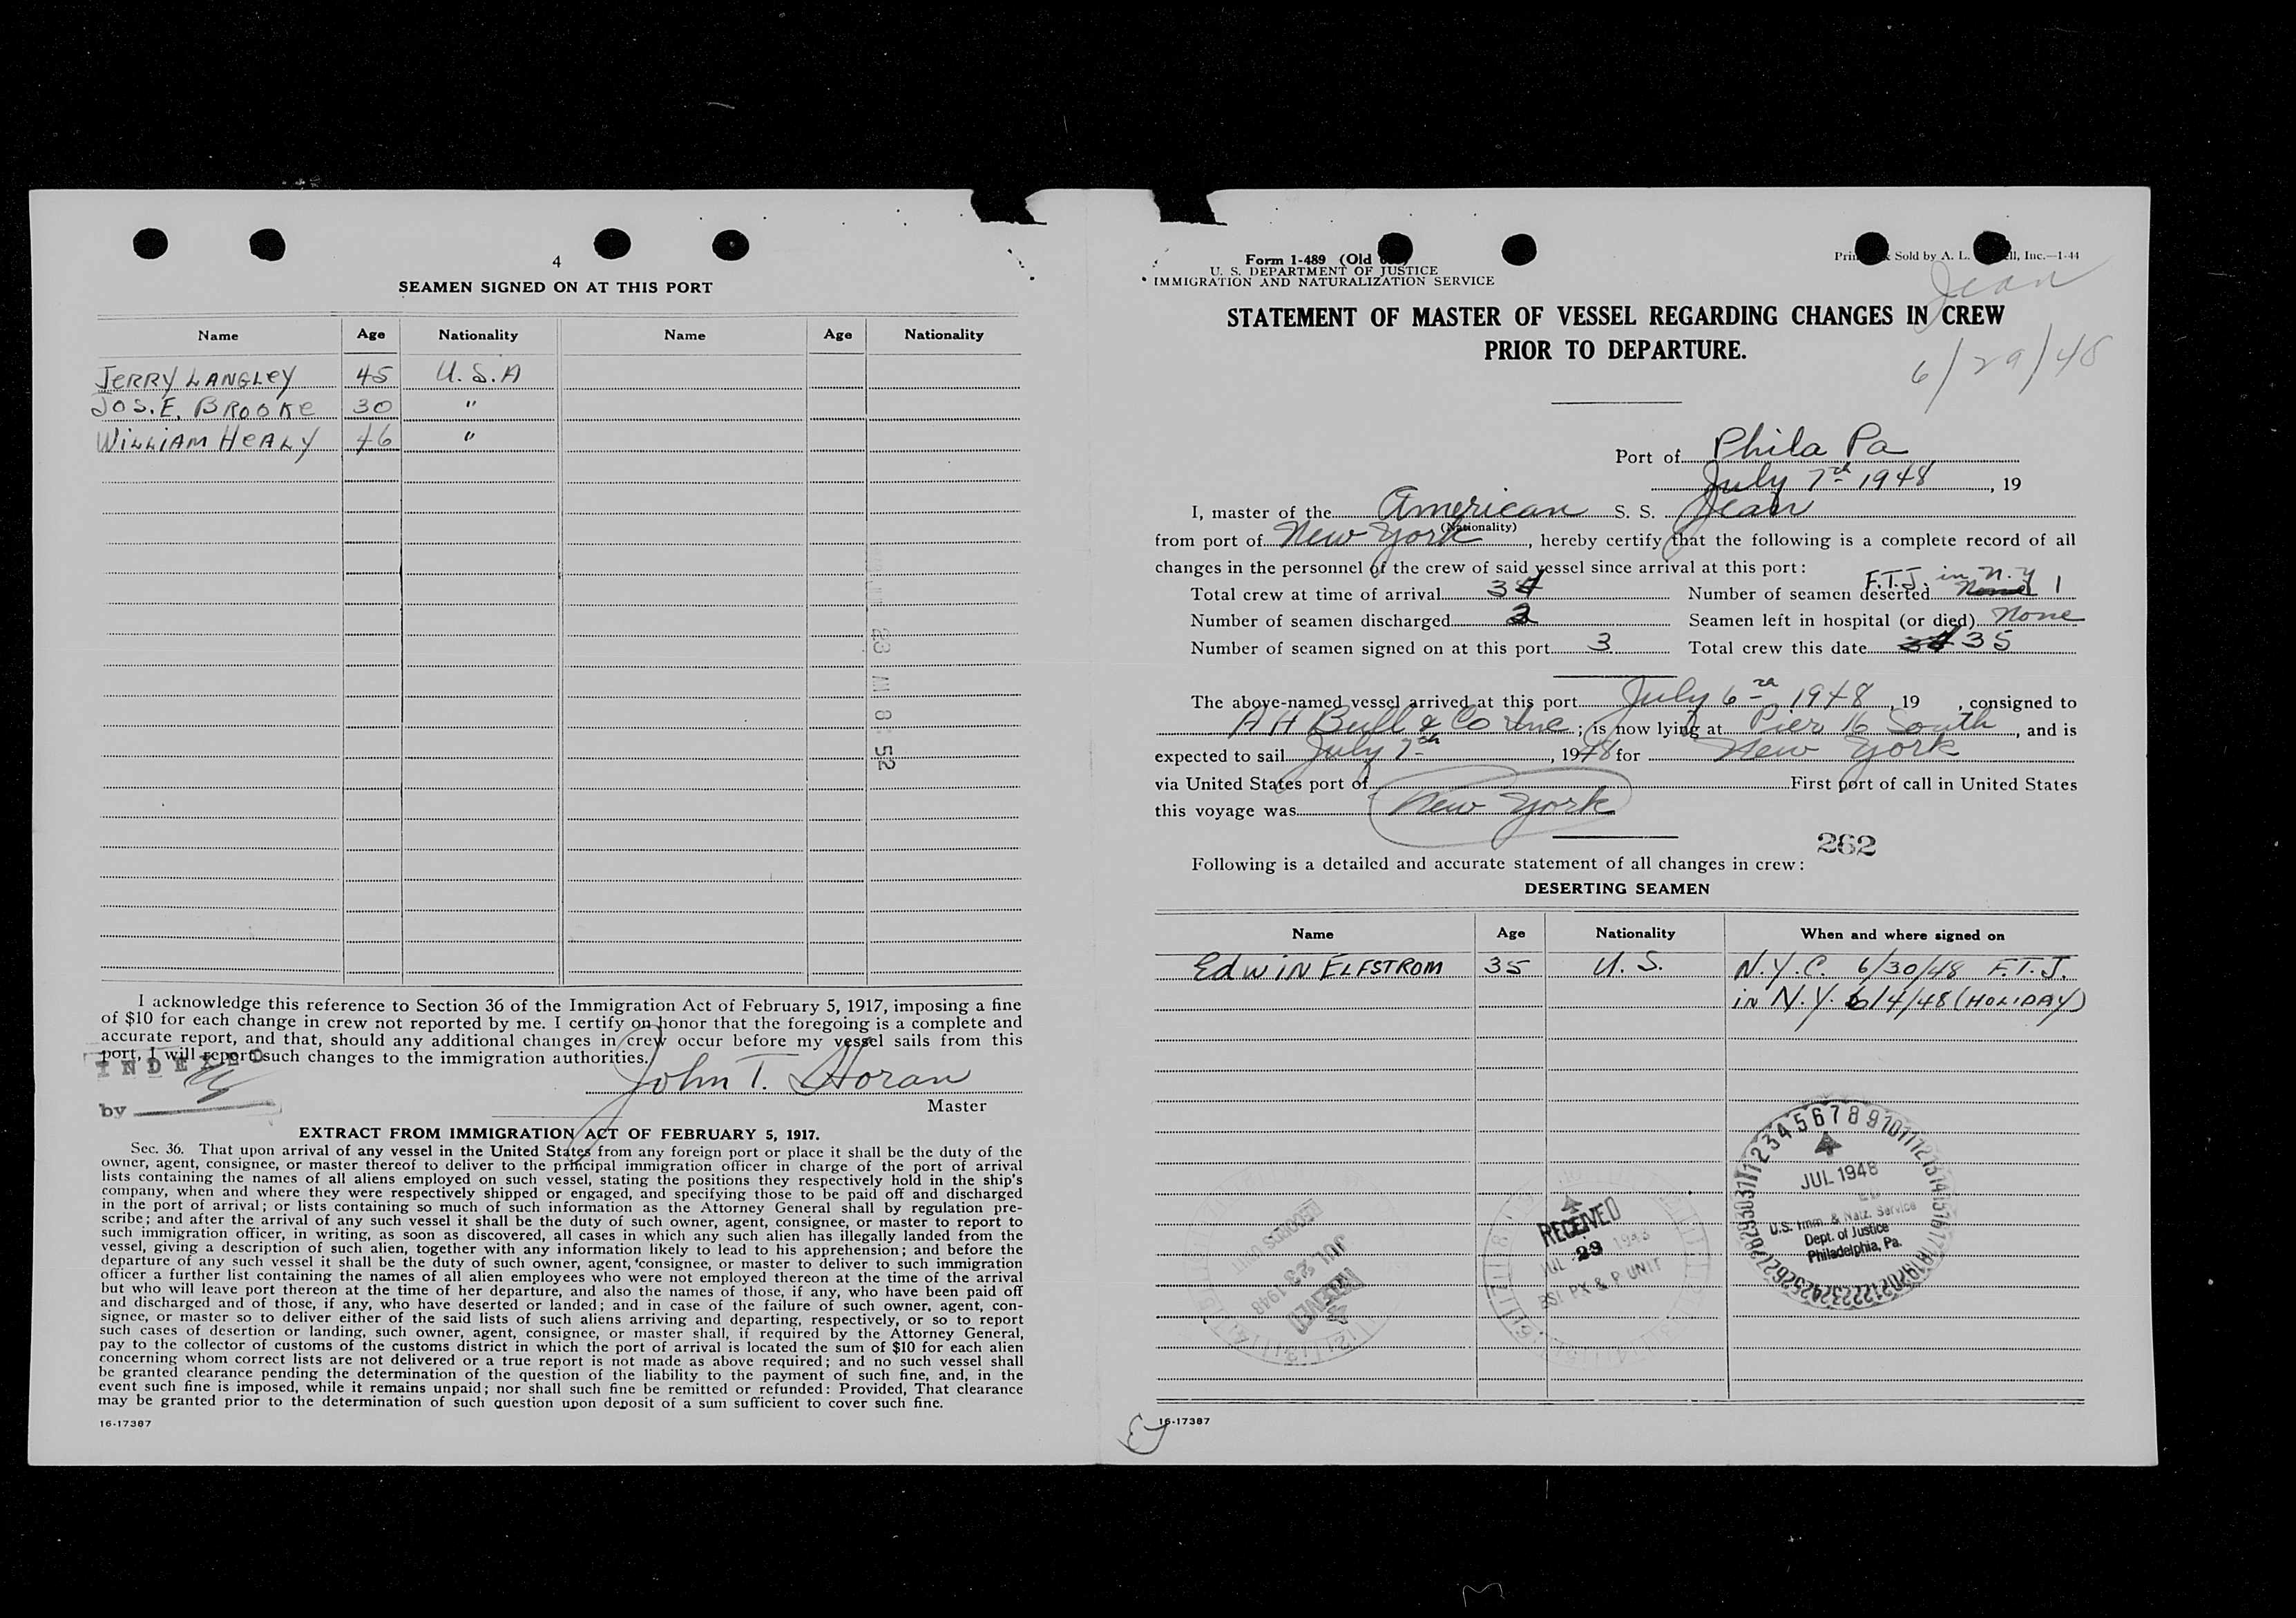 4
SEAMEN SIGNED ON AT THIS PORT
Name Age Nationality Name Age Nationality
JERRY LANGLEY 45 U.S.A
JOS. E. BROOKE 30 "
WILLIAM HEALY 46 "
23 AM 8 52
I acknowledge this reference to Section 36 of the Immigration Act of February 5, 1917, imposing a fine
of $10 for each change in crew not reported by me. I certify on honor that the foregoing is a complete and
accurate report, and that, should any additional changes in crew occur before my vessel sails from this
port, I will report such changes to the immigration authorities.
INDEXED
John T. Horan
by
Master
EXTRACT FROM IMMIGRATION ACT OF FEBRUARY 5, 1917.
Sec. 36. That upon arrival of any vessel in the United States from any foreign port or place it shall be the duty of the
owner, agent, consignee, or master thereof to deliver to the principal immigration officer in charge of the port of arrival
lists containing the names of all aliens employed on such vessel, stating the positions they respectively hold in the ship's
company, when and where they were respectively shipped or engaged, and specifying those to be paid off and discharged
in the port of arrival; or lists containing so much of such information as the Attorney General shall by regulation pre-
scribe; and after the arrival of any such vessel it shall be the duty of such owner, agent, consignee, or master to report to
such immigration officer, in writing, as soon as discovered, all cases in which any such alien has illegally landed from the
vessel, giving a description of such alien, together with any information likely to lead to his apprehension; and before the
departure of any such vessel it shall be the duty of such owner, agent, consignee, or master to deliver to such immigration
officer a further list containing the names of all alien employees who were not employed thereon at the time of the arrival
but who will leave port thereon at the time of her departure, and also the names of those, if any, who have been paid off
and discharged and of those, if any, who have deserted or landed; and in case of the failure of such owner, agent, con-
signee, or master so to deliver either of the said lists of such aliens arriving and departing, respectively, or so to report
such cases of desertion or landing, such owner, agent, consignee, or master shall, if required by the Attorney General,
pay to the collector of customs of the customs district in which the port of arrival is located the sum of $10 for each alien
concerning whom correct lists are not delivered or a true report is not made as above required; and no such vessel shall
be granted clearance pending the determination of the question of the liability to the payment of such fine, and, in the
event such fine is imposed, while it remains unpaid; nor shall such fine be remitted or refunded: Provided, That clearance
may be granted prior to the determination of such question upon deposit of a sum sufficient to cover such fine.
16-17387
Form 1-489 (Old
U. S. DEPARTMENT OF JUSTICE
IMMIGRATION AND NATURALIZATION SERVICE
Sold by A. L. Inc.—1-44
Jean
6/29/48
STATEMENT OF MASTER OF VESSEL REGARDING CHANGES IN CREW
PRIOR TO DEPARTURE.
Port of Phila Pa
July 7th 1948, 19
I, master of the American S. S. Jean
(Nationality)
from port of New York, hereby certify that the following is a complete record of all
changes in the personnel of the crew of said vessel since arrival at this port:
F.T.J. in N.Y
Total crew at time of arrival 34 Number of seamen deserted None 1
Number of seamen discharged 2 Seamen left in hospital (or died) None
Number of seamen signed on at this port 3 Total crew this date 35
The above-named vessel arrived at this port July 6th 1948, 19 , consigned to
A H Bull & Co Inc; is now lying at Pier 16 South, and is
expected to sail July 7th, 1948 for New York
via United States port of First port of call in United States
this voyage was New York
262
Following is a detailed and accurate statement of all changes in crew:
DESERTING SEAMEN
Name Age Nationality When and where signed on
EDWIN ELFSTROM 35 U.S. N.Y.C. 6/30/48 F.T.J.
IN N.Y. 6/4/48 (HOLIDAY)
JUL 1948
U.S. Imm. & Natz. Service
Dept. of Justice
Philadelphia, Pa.
RECEIVED
JUL 29 1948
BSI PX & P UNIT
RECORDS UNIT
JUL 23 1948
RECEIVED
16-17387